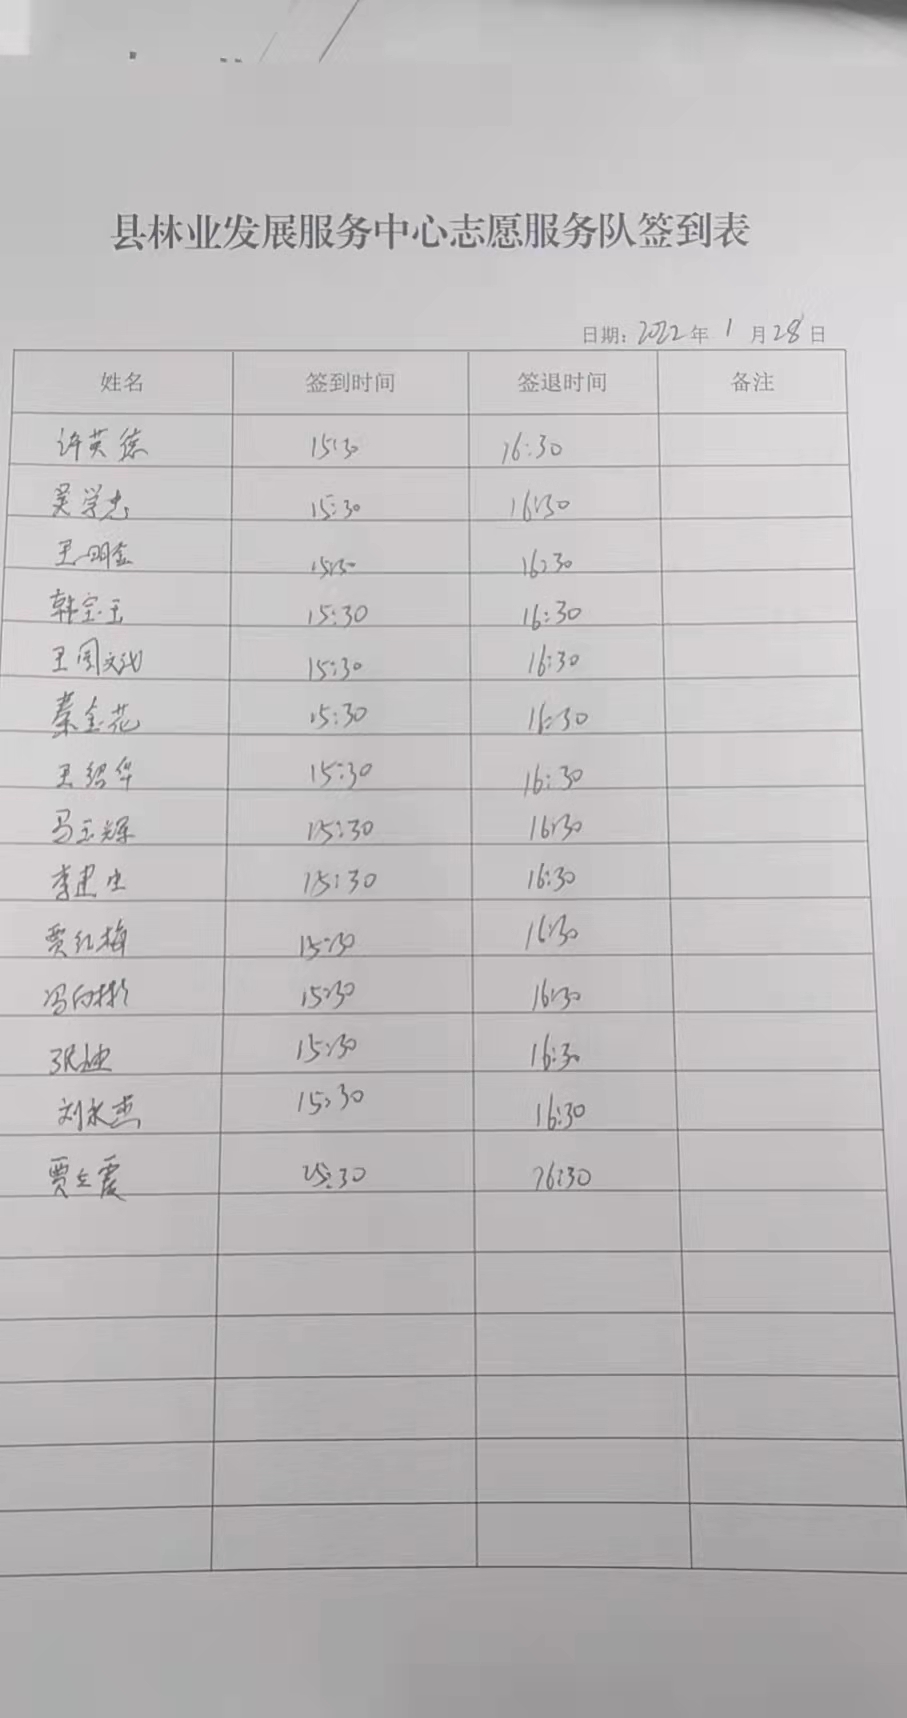 县林业发展服务中心志愿服务队签到表
日期: 2022年 1 月 28 日
姓名 签到时间 签退时间 备注
许英德 15:30 16:30
吴学忠 15:30 16:30
王明金 15:30 16:30
韩宝玉 15:30 16:30
15:30 16:30
秦金花 15:30 16:30
王绍华 15:30 16:30
冯玉辉 15:30 16:30
李建生 15:30 16:30
贾红梅 15:30 16:30
冯向彬 15:30 16:30
15:30 16:30
刘永杰 15:30 16:30
贾立霞 15:30 16:30